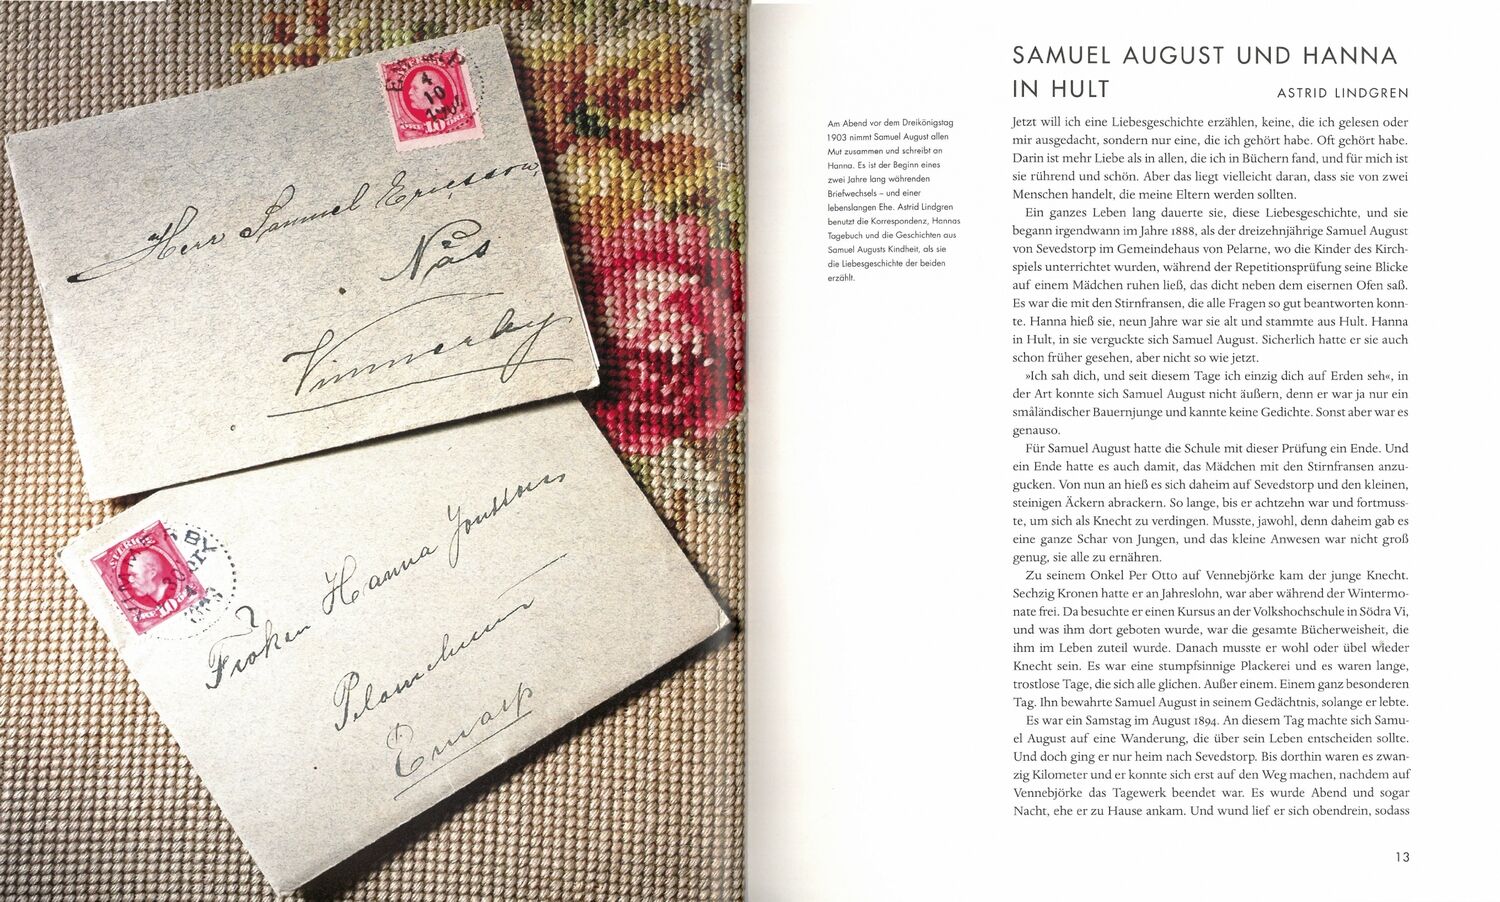 EMARP
4
10
Herr Samuel Ericsson,
Näs
Vimmerby
SVERIGE
10
30
Fröken Hanna Jonsson
Pelarnehult
Emarp
SAMUEL AUGUST UND HANNA
IN HULT
ASTRID LINDGREN
Am Abend vor dem Dreikönigstag
1903 nimmt Samuel August allen
Mut zusammen und schreibt an
Hanna. Es ist der Beginn eines
zwei Jahre lang währenden
Briefwechsels – und einer
lebenslangen Ehe. Astrid Lindgren
benutzt die Korrespondenz, Hannas
Tagebuch und die Geschichten aus
Samuel Augusts Kindheit, als sie
die Liebesgeschichte der beiden
erzählt.
Jetzt will ich eine Liebesgeschichte erzählen, keine, die ich gelesen oder
mir ausgedacht, sondern nur eine, die ich gehört habe. Oft gehört habe.
Darin ist mehr Liebe als in allen, die ich in Büchern fand, und für mich ist
sie rührend und schön. Aber das liegt vielleicht daran, dass sie von zwei
Menschen handelt, die meine Eltern werden sollten.
Ein ganzes Leben lang dauerte sie, diese Liebesgeschichte, und sie
begann irgendwann im Jahre 1888, als der dreizehnjährige Samuel August
von Sevedstorp im Gemeindehaus von Pelarne, wo die Kinder des Kirch-
spiels unterrichtet wurden, während der Repetitionsprüfung seine Blicke
auf einem Mädchen ruhen ließ, das dicht neben dem eisernen Ofen saß.
Es war die mit den Stirnfransen, die alle Fragen so gut beantworten konn-
te. Hanna hieß sie, neun Jahre war sie alt und stammte aus Hult. Hanna
in Hult, in sie verguckte sich Samuel August. Sicherlich hatte er sie auch
schon früher gesehen, aber nicht so wie jetzt.
»Ich sah dich, und seit diesem Tage ich einzig dich auf Erden seh«, in
der Art konnte sich Samuel August nicht äußern, denn er war ja nur ein
småländischer Bauernjunge und kannte keine Gedichte. Sonst aber war es
genauso.
Für Samuel August hatte die Schule mit dieser Prüfung ein Ende. Und
ein Ende hatte es auch damit, das Mädchen mit den Stirnfransen anzu-
gucken. Von nun an hieß es sich daheim auf Sevedstorp und den kleinen,
steinigen Äckern abrackern. So lange, bis er achtzehn war und fortmuss-
te, um sich als Knecht zu verdingen. Musste, jawohl, denn daheim gab es
eine ganze Schar von Jungen, und das kleine Anwesen war nicht groß
genug, sie alle zu ernähren.
Zu seinem Onkel Per Otto auf Vennebjörke kam der junge Knecht.
Sechzig Kronen hatte er an Jahreslohn, war aber während der Wintermo-
nate frei. Da besuchte er einen Kursus an der Volkshochschule in Södra Vi,
und was ihm dort geboten wurde, war die gesamte Bücherweisheit, die
ihm im Leben zuteil wurde. Danach musste er wohl oder übel wieder
Knecht sein. Es war eine stumpfsinnige Plackerei und es waren lange,
trostlose Tage, die sich alle glichen. Außer einem. Einem ganz besonderen
Tag. Ihn bewahrte Samuel August in seinem Gedächtnis, solange er lebte.
Es war ein Samstag im August 1894. An diesem Tag machte sich Samu-
el August auf eine Wanderung, die über sein Leben entscheiden sollte.
Und doch ging er nur heim nach Sevedstorp. Bis dorthin waren es zwan-
zig Kilometer und er konnte sich erst auf den Weg machen, nachdem auf
Vennebjörke das Tagewerk beendet war. Es wurde Abend und sogar
Nacht, ehe er zu Hause ankam. Und wund lief er sich obendrein, sodass
13